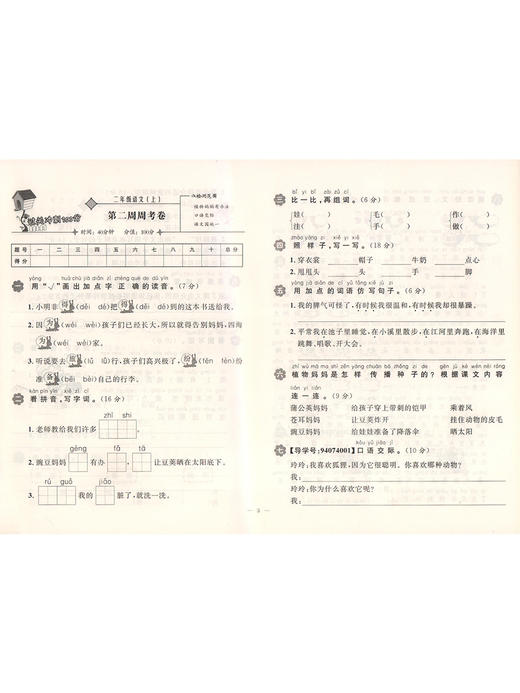 过关冲刺100分
二年级语文(上)
第二周周考卷
时间:40分钟 分值:100分
☆检测范围
植物妈妈有办法
口语交际
语文园地一
题号 一 二 三 四 五 六 七 八 九 十 总分
得分
yòng huà chū jiā diǎn zì zhèng què de dú yīn
一、用“√”画出加点字正确的读音。(7分)
1. 小明非得(děi dé)把得(děi dé)到的这本书送给我。
2. 因为(wéi wèi)孩子们已经长大,所以就得告别妈妈,四海
为(wéi wèi)家。
3. 听说要去旅(lǚ lǔ)行,孩子们高兴极了,纷(fēn fēn)纷
备(bèi bēi)自己的行李。
kàn pīn yīn xiě zì cí
二、看拼音,写字词。(16分)
zhī shi
1. 老师教给我们许多 。
gèng fǎ tā
2. 豌豆妈妈 有办 , 让豆荚晒在太阳底下。
rú guǒ jiǎo
3. 我的 脏了,就洗一洗。
bǐ yì bǐ zài zǔ cí
三、比一比,再组词。(6分)
娃( ) 毛( ) 作( )
挂( ) 手( ) 做( )
zhào yàng zi xiě yì xiě
四、照样子,写一写。(18分)
1. 穿衣裳 帽子 牛奶 点心
2. 甩甩头 头 手 脚
yòng jiā diǎn de cí yǔ fǎng xiě jù zi
五、用加点的词语仿写句子。(6分)
1. 我的脾气可怪了,有时候我很温和,有时候我却很暴躁。
2. 平常我在池子里睡觉,在小溪里散步,在江河里奔跑,在海洋里
跳舞、唱歌、开大会。
zhí wù mā ma shì zěn yàng chuán bō zhǒng zi de gēn jù kè wén nèi róng
六、植物妈妈是怎样传播种子的?根据课文内容
lián yi lián
连一连。(6分)
蒲公英妈妈 给孩子穿上带刺的铠甲 乘着风
苍耳妈妈 让豆荚炸开 挂住动物的皮毛
豌豆妈妈 给娃娃准备了降落伞 晒太阳
kǒu yǔ jiāo jì
七、【导学号:94074001】口语交际。(10分)
玲玲:我喜欢狐狸,因为它很聪明。你喜欢哪种动物?
我:
玲玲:你为什么喜欢它呢?
我:
5